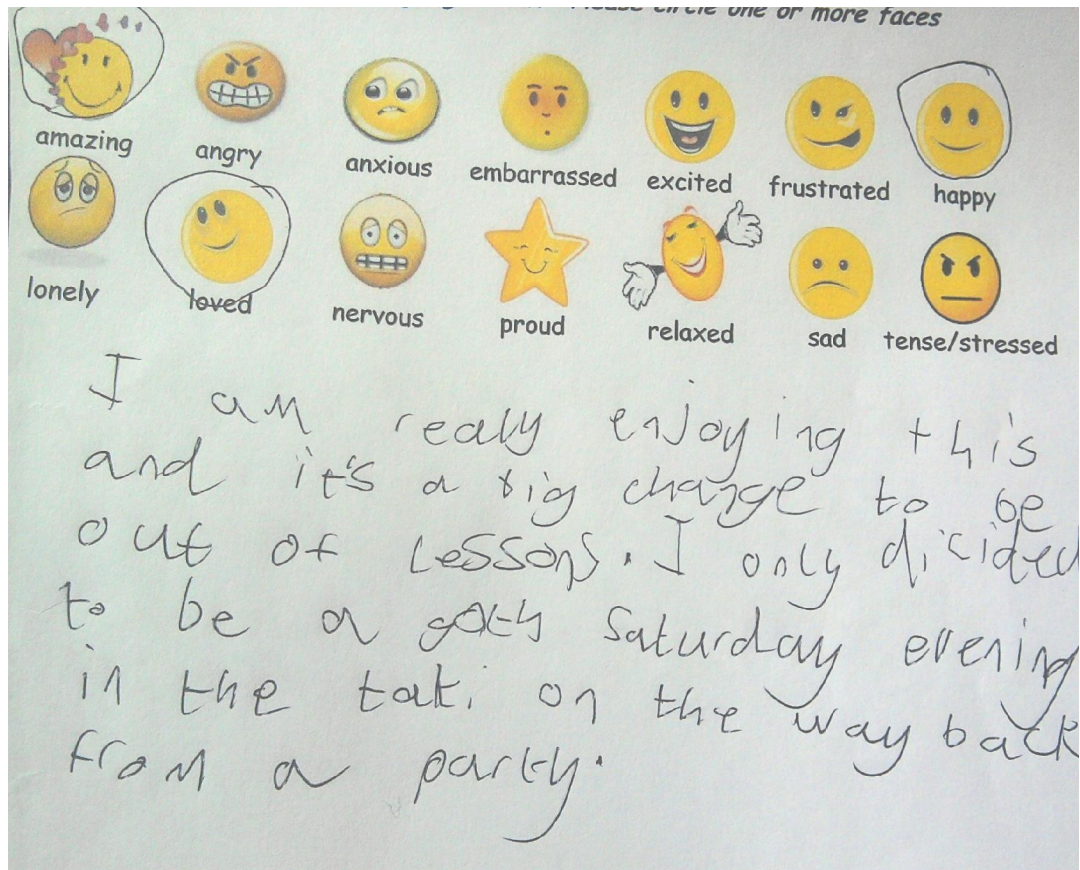 circle one or more faces
amazing angry anxious embarrassed excited frustrated happy
lonely loved nervous proud relaxed sad tense/stressed
I am realy enjoying this
and it's a big change to be
out of lessons. I only dicided
to be a goth Saturday evening
in the taxi on the way back
from a party.